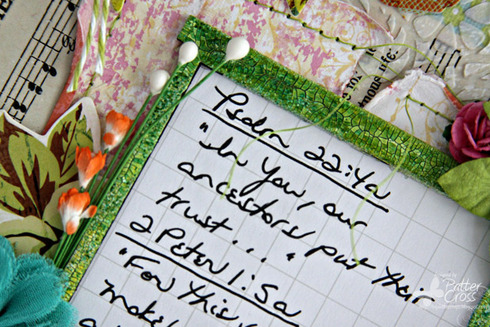 Psalm 22:4a
"In You, our
ancestors put their
trust... &
2 Peter 1:5a
"For this
Patter
Cross